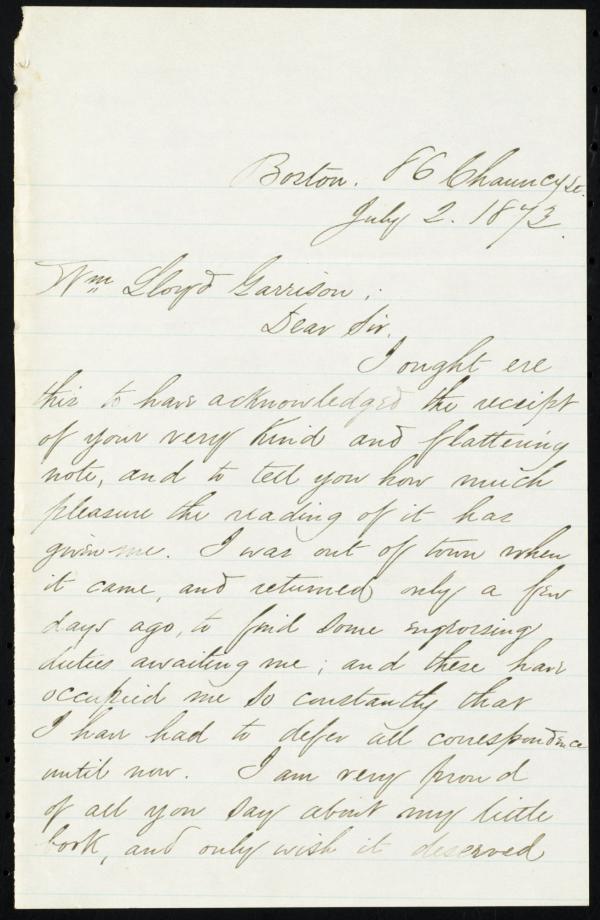 Boston. 86 Chauncy St.
July 2. 1873.
Wm Lloyd Garrison;
Dear Sir.
I ought ere
this to have acknowledged the receipt
of your very kind and flattering
note, and to tell you how much
pleasure the reading of it has
given me. I was out of town when
it came, and returned only a few
days ago, to find some engrossing
duties awaiting me; and these have
occupied me so constantly that
I have had to defer all correspondence
until now. I am very proud
of all you say about my little
book, and only wish it deserved